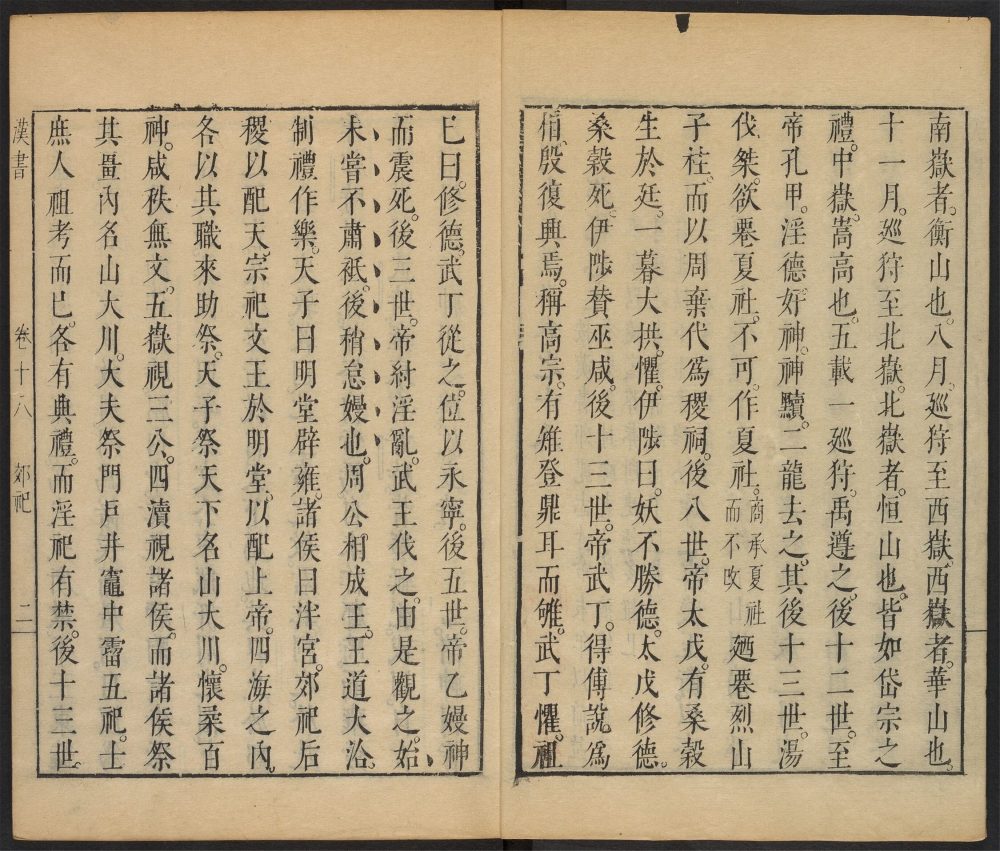 南嶽者。衡山也。八月。廵狩至西嶽。西嶽者。華山也。
十一月。廵狩至北嶽。北嶽者。恒山也。皆如岱宗之
禮。中嶽。嵩高也。五載一廵狩。禹遵之。後十二世。至
帝孔甲。淫德好神。神黷。二龍去之。其後十三世。湯
伐桀。欲䙴夏社。不可。作夏社。商承夏社而不改廼䙴烈山
子柱。而以周棄代爲稷祠。後八世。帝太戊。有桑穀
生於廷。一暮大拱。懼。伊陟曰。妖不勝德。太戊修德。
桑穀死。伊陟贊巫咸。後十三世。帝武丁。得傅說。爲
相。殷復興焉。稱高宗。有雉登鼎耳而雊。武丁懼。祖
巳曰。修德。武丁從之。位以永寧。後五世。帝乙嫚神
而震死。後三世。帝紂淫亂。武王伐之。由是觀之。始
未嘗不肅祗。後稍怠嫚也。周公相成王。王道大洽。
制禮作樂。天子曰明堂辟雍。諸侯曰泮宮。郊祀后
稷以配天。宗祀文王於明堂。以配上帝。四海之內。
各以其職來助祭。天子祭天下名山大川。懷柔百
神。咸秩無文。五嶽視三公。四瀆視諸侯。而諸侯祭
其畺內名山大川。大夫祭門戶井竈中霤五祀。士
庶人祖考而已。各有典禮。而淫祀有禁。後十三世。
漢書 卷十八 郊祀 二